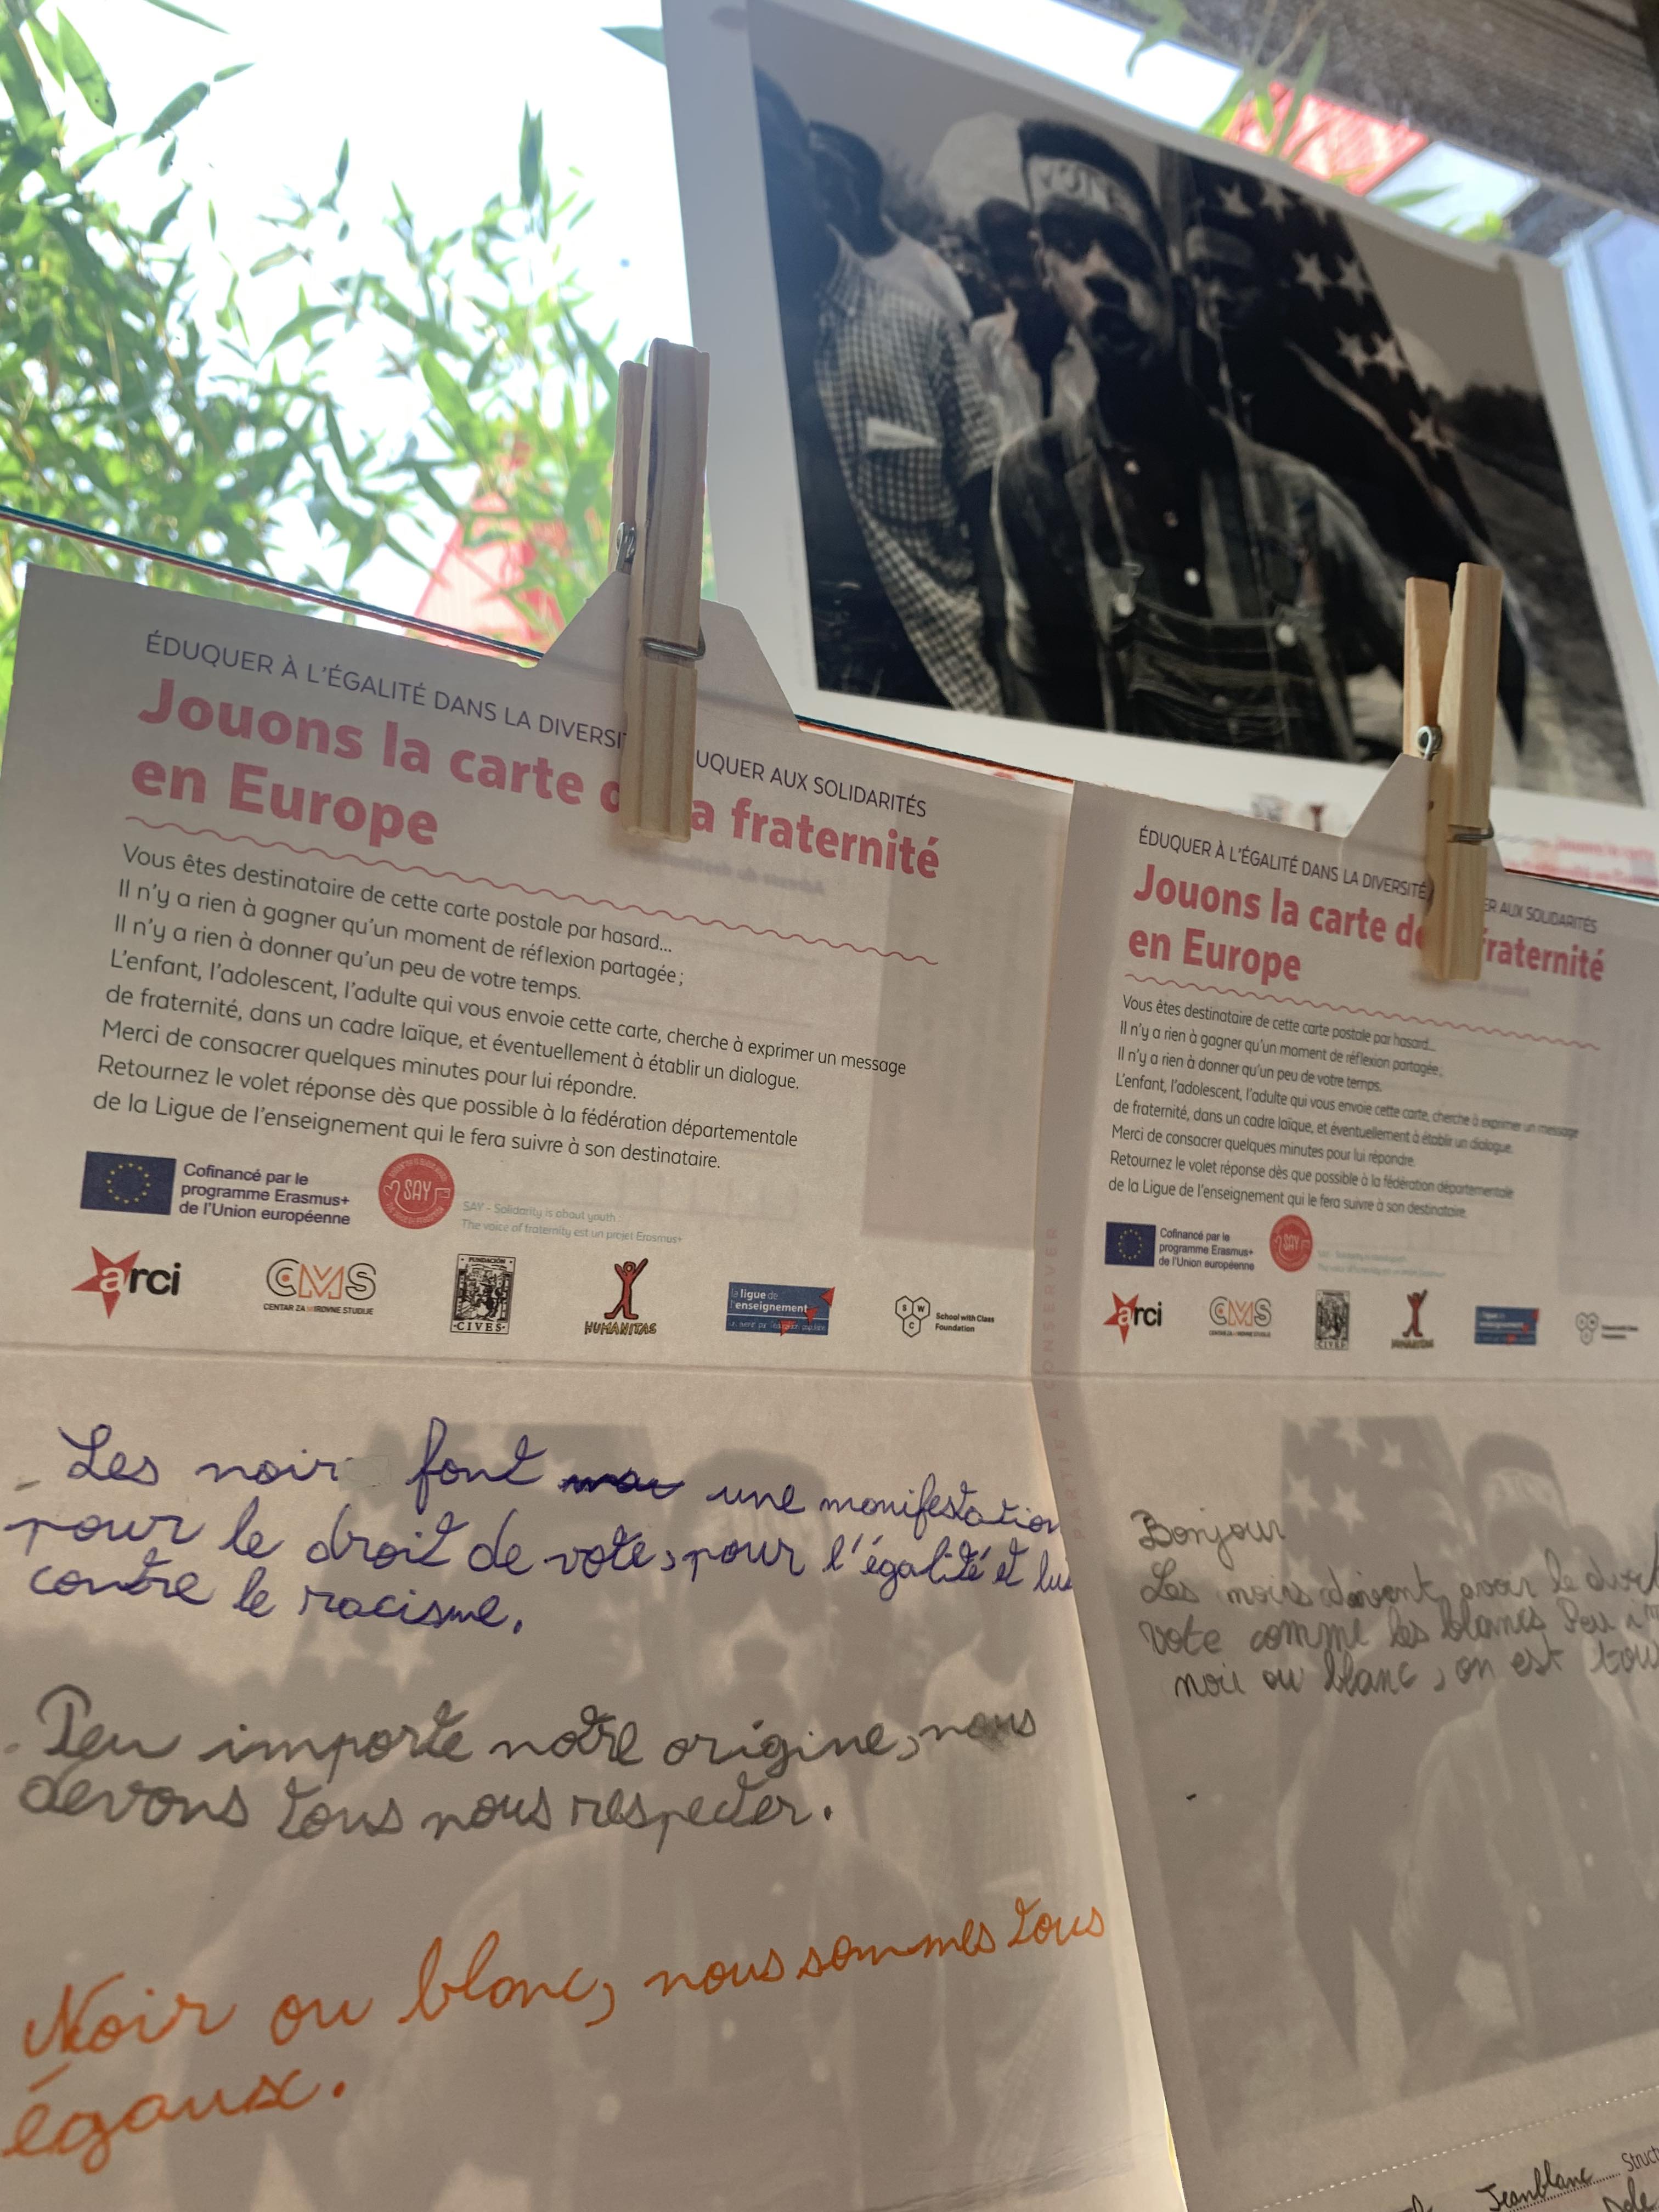 VOTE
ÉDUQUER À L'ÉGALITÉ DANS LA DIVERSI
UQUER AUX SOLIDARITÉS
Jouons la carte d a fraternité
en Europe
Vous êtes destinataire de cette carte postale par hasard...
Il n'y a rien à gagner qu'un moment de réflexion partagée ;
Il n'y a rien à donner qu'un peu de votre temps.
L'enfant, l'adolescent, l'adulte qui vous envoie cette carte, cherche à exprimer un message
de fraternité, dans un cadre laïque, et éventuellement à établir un dialogue.
Merci de consacrer quelques minutes pour lui répondre.
Retournez le volet réponse dès que possible à la fédération départementale
de la Ligue de l'enseignement qui le fera suivre à son destinataire.
Cofinancé par le
programme Erasmus+
de l'Union européenne
SAY
SAY - Solidarity is about youth
The voice of fraternity est un projet Erasmus+
arci
CMS
CENTAR ZA MIROVNE STUDIJE
FUNDACIÓN
CIVES
HUMANITAS
la ligue de
l'enseignement
un avenir par l'éducation populaire
S W C
School with Class
Foundation
Les noir font une manifestation
pour le droit de vote, pour l'égalité et
contre le racisme.
Peu importe notre origine, nous
devons tous nous respecter.
Noir ou blanc, nous sommes tous
égaux.
ÉDUQUER À L'ÉGALITÉ DANS LA DIVERSITÉ
ER AUX SOLIDARITÉS
Jouons la carte de fraternité
en Europe
Vous êtes destinataire de cette carte postale par hasard...
Il n'y a rien à gagner qu'un moment de réflexion partagée ;
Il n'y a rien à donner qu'un peu de votre temps.
L'enfant, l'adolescent, l'adulte qui vous envoie cette carte, cherche à exprimer un message
de fraternité, dans un cadre laïque, et éventuellement à établir un dialogue.
Merci de consacrer quelques minutes pour lui répondre.
Retournez le volet réponse dès que possible à la fédération départementale
de la Ligue de l'enseignement qui le fera suivre à son destinataire.
Cofinancé par le
programme Erasmus+
de l'Union européenne
SAY
arci
CMS
CIVES
HUMANITAS
PARTIE À CONSERVER
Bonjour
Les noirs doivent avoir le droit
vote comme les blancs Peu
noir ou blanc, on est tou
Jeanblanc Struct